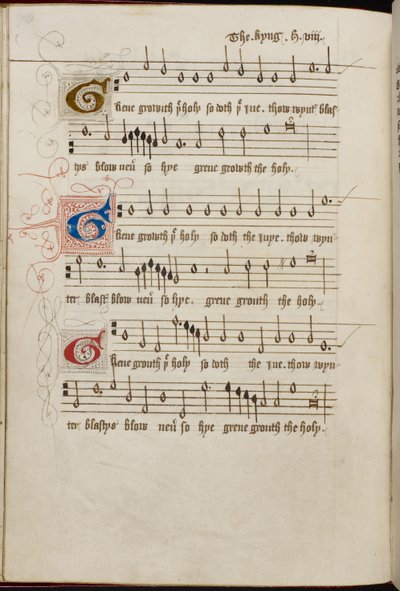 The . kyng . H . viii .
Grene growith yͤ holy so doth yͤ iue . thow wynt͛ blas
tys blow neu͛ so hye grene growth the holy .
Grene growth yͤ holy so doth the iuye . thow wyn
ter blast͛ blow neu͛ so hye . grene grouth the holy .
Grene grouth yͤ holy so doth the iue . thow wyn
ter blastys blow neu͛ so hye grene grouth the holy .